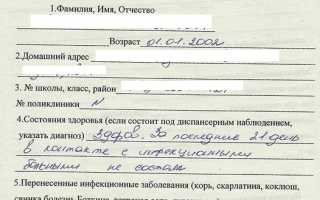 1.Фамилия, Имя, Отчество
Возраст 01.01.2002
2.Домашний адрес
3. № школы, класс, район
№ поликлиники N
4.Состояния здоровья (если состоит под диспансерным наблюдением,
указать диагноз) Здоров. За последние 21 день
в контакте с инфекционными
больными не состоял
5.Перенесенные инфекционные заболевания (корь, скарлатина, коклюш,